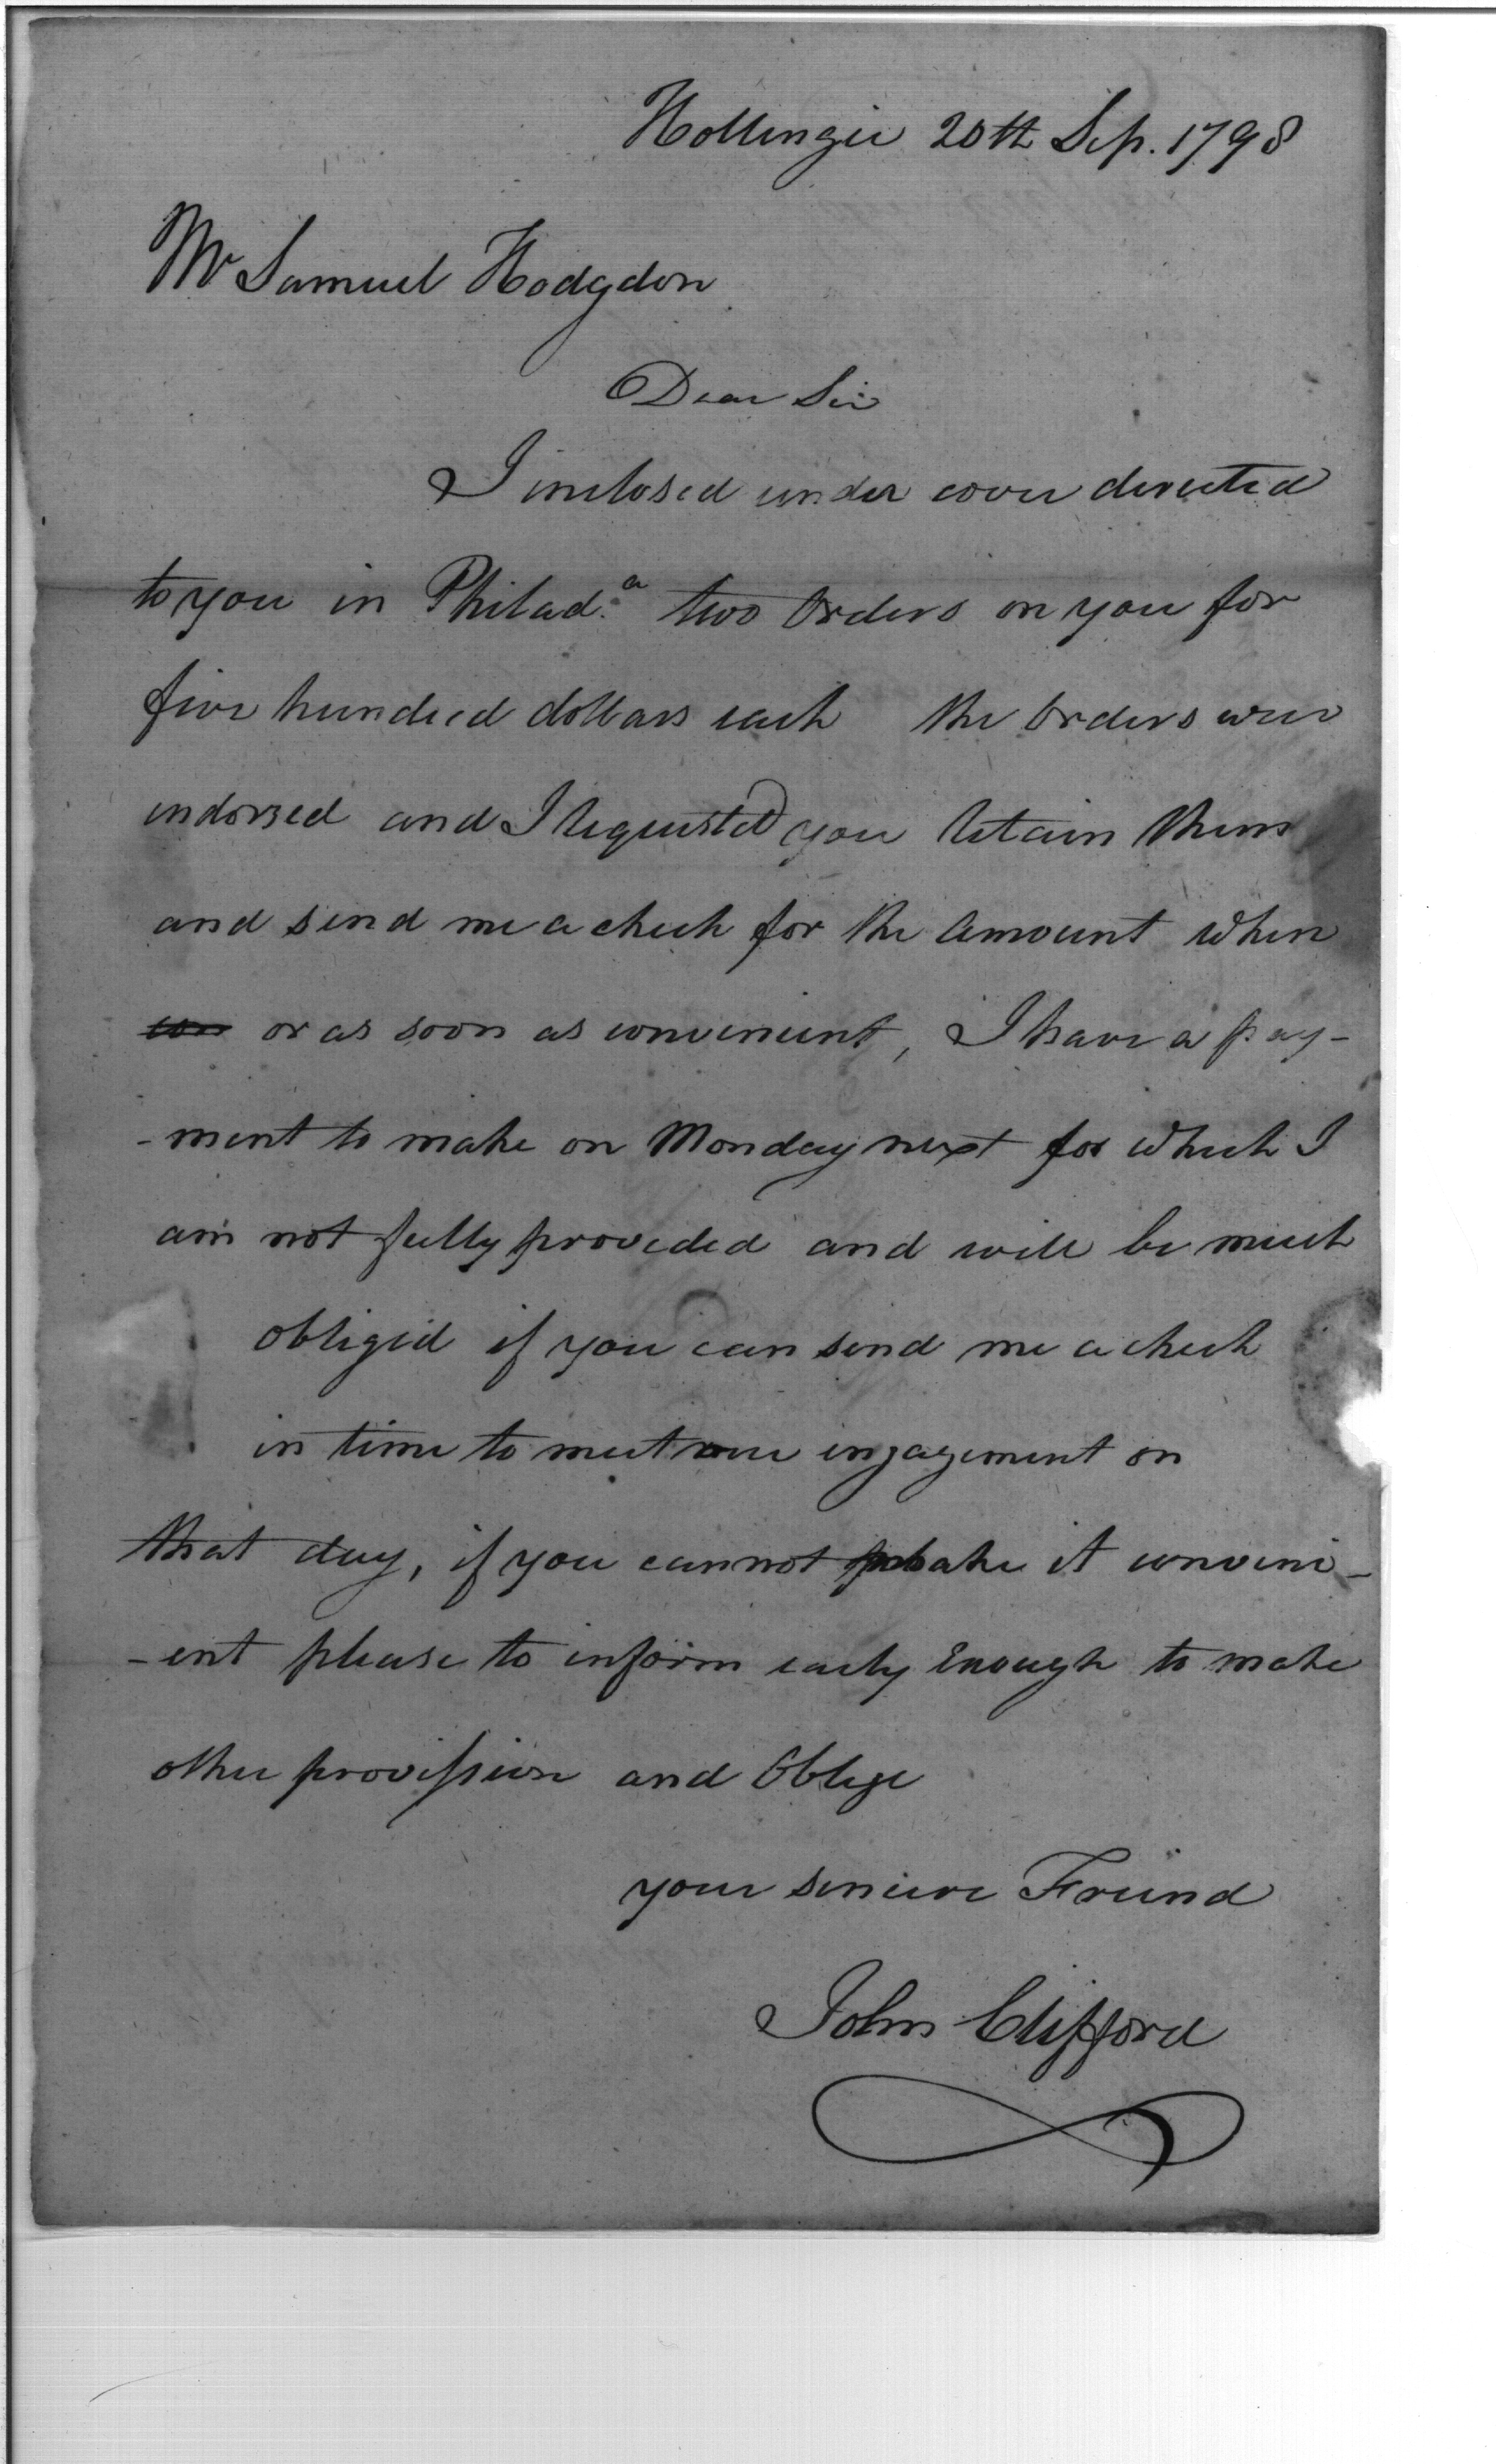 Hollingie 20th Sep. 1798
Mr Samuel Hodgdon
Dear Sir
I inclosed under cover directed
to you in Philad.a two Orders on you for
five hundred dollars each the Orders were
indorsed and I requested you retain them
and send me a check for the amount when
con or as soon as convenient, I have a pay-
-ment to make on Monday next for which I
am not fully provided and will be much
obliged if you can send me a check
in time to meet my engagement on
that day, if you cannot make it conveni-
-ent please to inform early Enough to make
other provission and Oblige
your sincere Friend
John Clifford